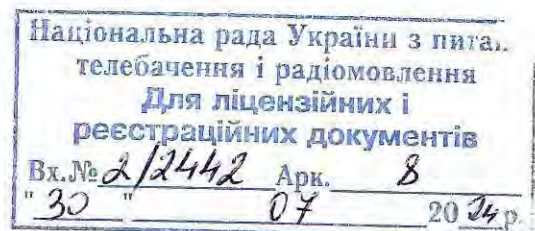 Національна рада України з питан
телебачення і радіомовлення
Для ліцензійних і
реєстраційних документів
Вх.№ 2/2442 Арк. 8
"30" 07 2024 р.